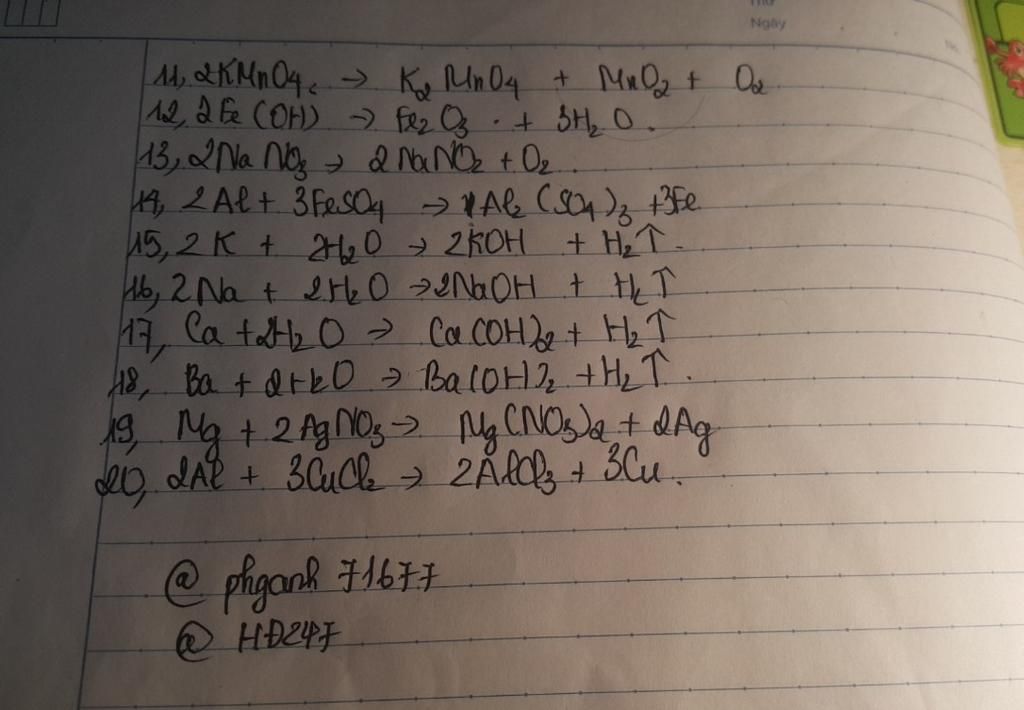 Thứ
Ngày
No.
11, 2KMnO4 → K2 MnO4 + MnO2 + O2
12, 2Fe (OH) → Fe2O3 . + 3H2O .
13, 2Na NO3 → 2NaNO2 + O2 .
14, 2Al + 3FeSO4 → 1Al2 (SO4)3 + 3Fe
15, 2 K + 2H2O → 2KOH + H2↑ .
16, 2Na + 2H2O → 2NaOH + H2↑
17, Ca + 2H2O → Ca(OH)2 + H2↑
18, Ba + 2H2O → Ba(OH)2 + H2↑ .
19, Mg + 2AgNO3 → Mg(NO3)2 + 2Ag
20, 2Al + 3CuCl2 → 2AlCl3 + 3Cu .
@ phganh 71677
@ HĐ247